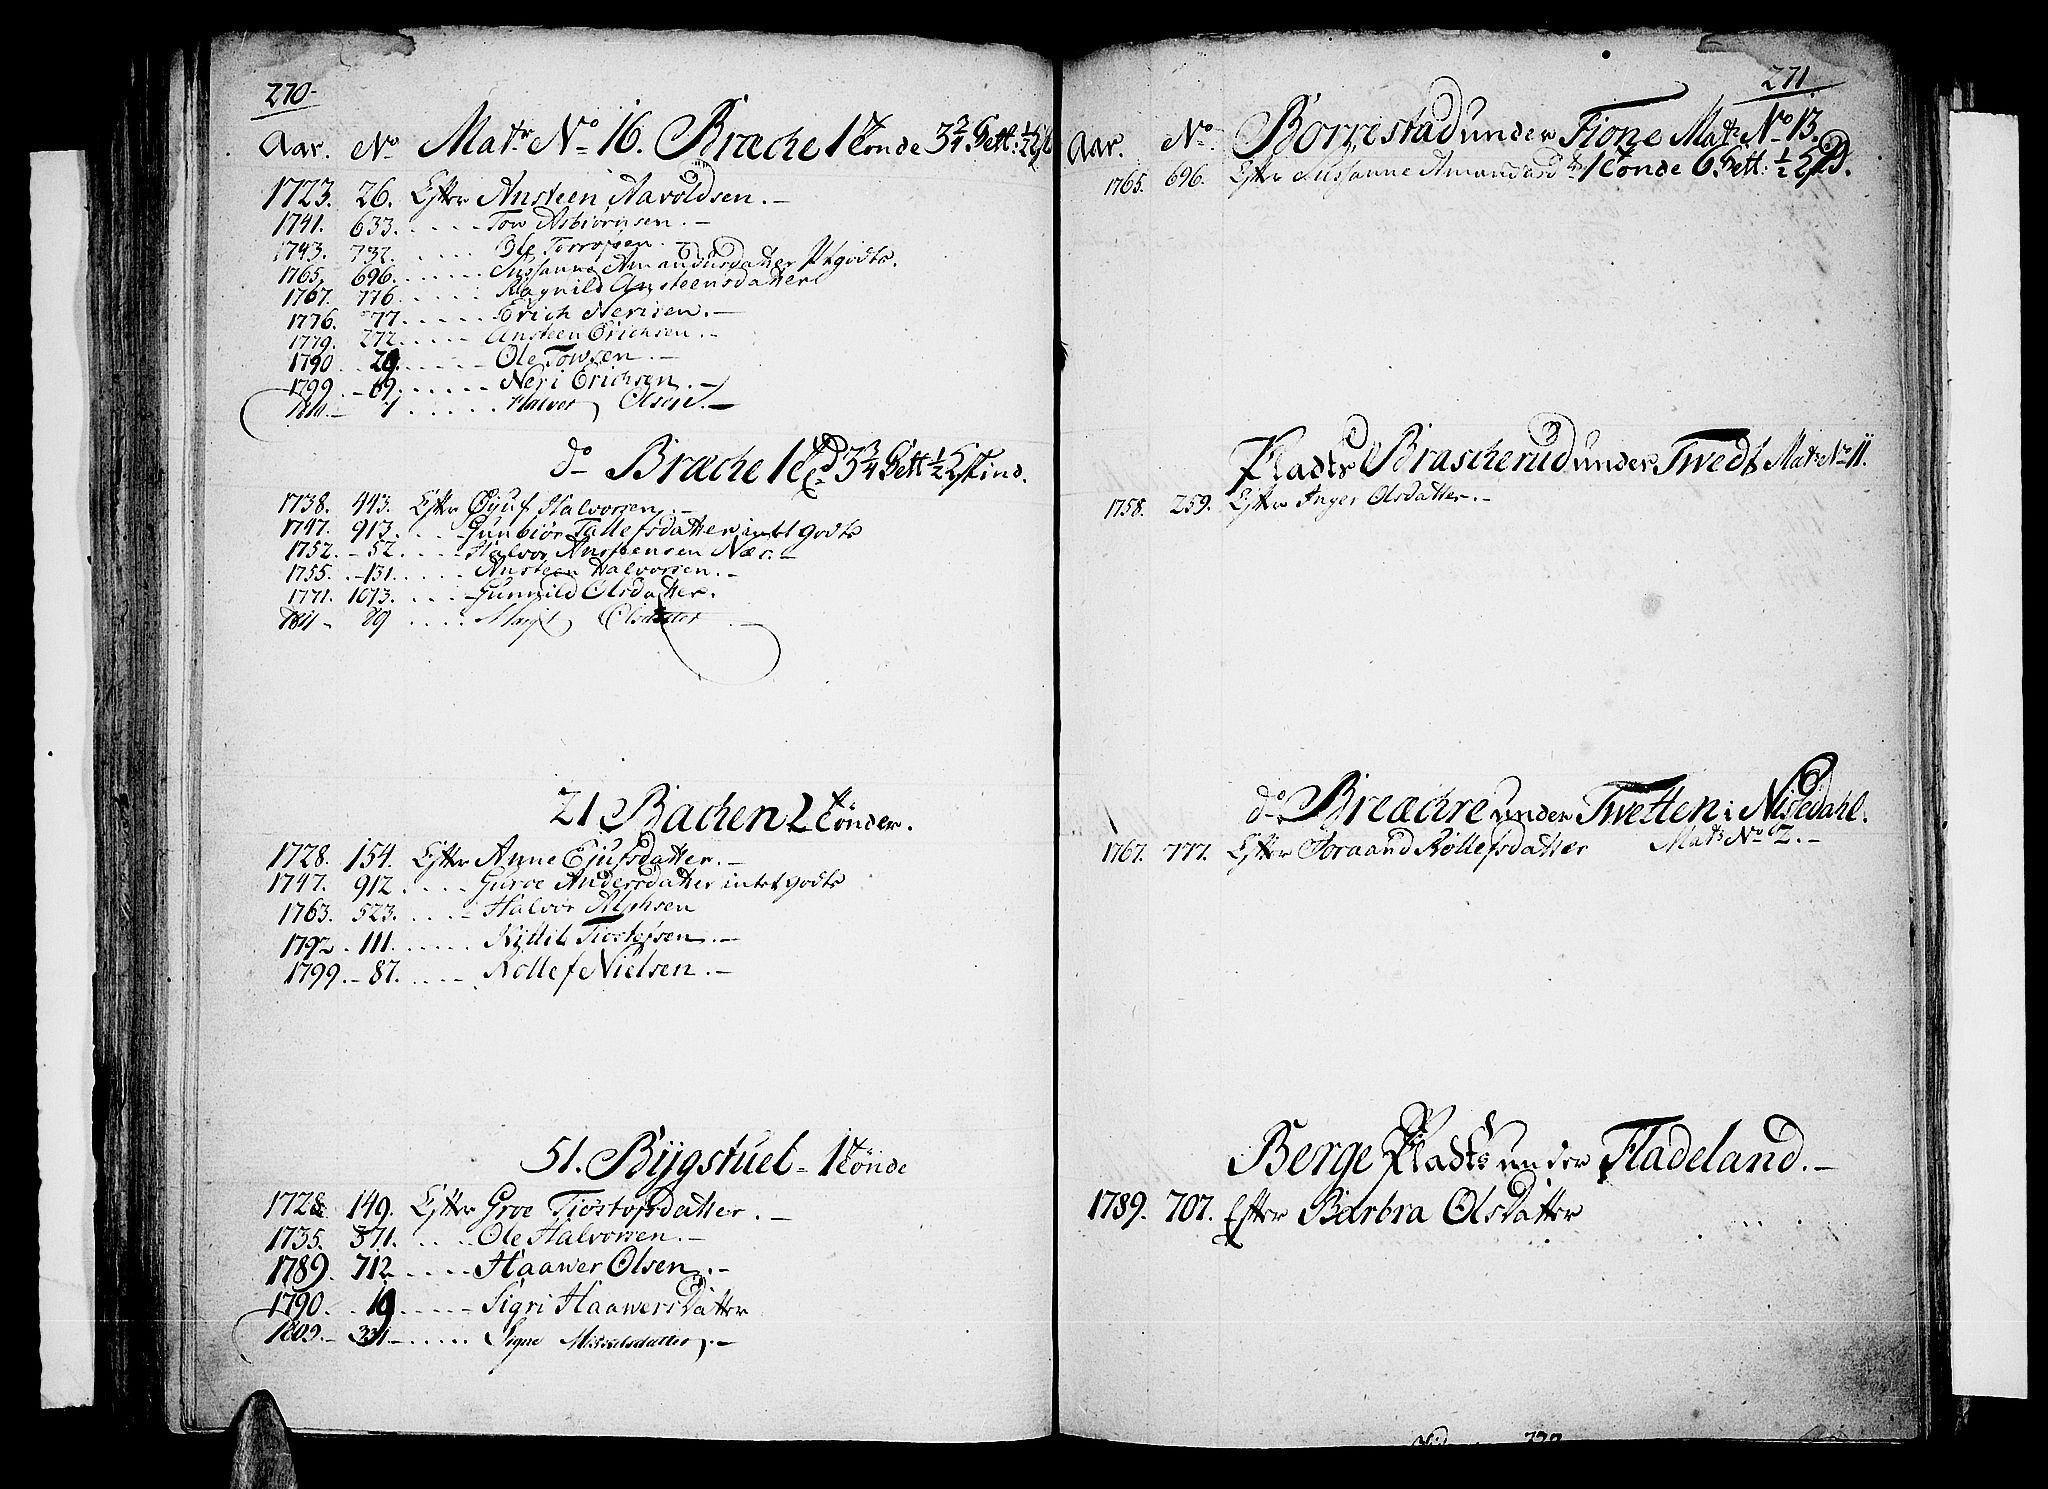 270
Aar. No Matr No 16. Bræche 1 tønde 3 3/4 Sett: 1/2
1723. 26. Efter Ansteen Aavoldsen.
1741. 633. Tow Asbiørnsen.
1743. 732. Ole
1765. 696. Sussanne Amandusdatter Jntgodts.
1767. 776. Ragnild Ansteensdatter
1776. 77. Erich Nerisen.
1779. 272. Ansteen Erichsen.
1790 29. Ole Towsen.
1799. 69. Neri Erichsen.
1811. 1 Halvor Olsen.
do Bræche 1 td 3 3/4 Sett 1/2 Skind.
1738. 443. Efter Øjuf Halvorsen.
1747. 913. Gunbiør Tallefsdatter intet godts
1752. 52. Halvor Ansteensen Næs.
1755. 131. Ansteen Halvorsen.
1771. 1073. Gunnild Olsdatter.
1811 89 Margit Olsdatter
21 Bachen 2 tønder.
1728. 154. Efter Anne Ejufsdatter.
1747. 912. Guroe Andersdatter intet godts
1763. 523. Halvor Alphsen
1792. 111. Kittil Tiostefsen.
1799. 87. Rollef Nielsen.
51. Bygstuel 1 tønde
1728 149. Efter Groe Tiostofsdatter.
1735. 371. Ole Halvorsen.
1789. 712 Haawer Olsen.
1790. 19 Sigri HaawersDatter
1809. 331 Signe Mickelsdatter.
271
Aar. No Borrestad under Fione Matr No 13.
1 tønde 6 Sett: 1/2
1765. 696. Efter Sussanne Amandusd tr
Plads Brascherud under Twedt Matr No 11.
1758. 259. Efter Inger Olsdatter.
do Breæchre under Twetten i Nissedahl.
1767. 777. Efter Joraand Rollefsdatter Matr No 2.
Berge Plads under Fladeland.
1789. 707. Efter Barbra OlsDatter